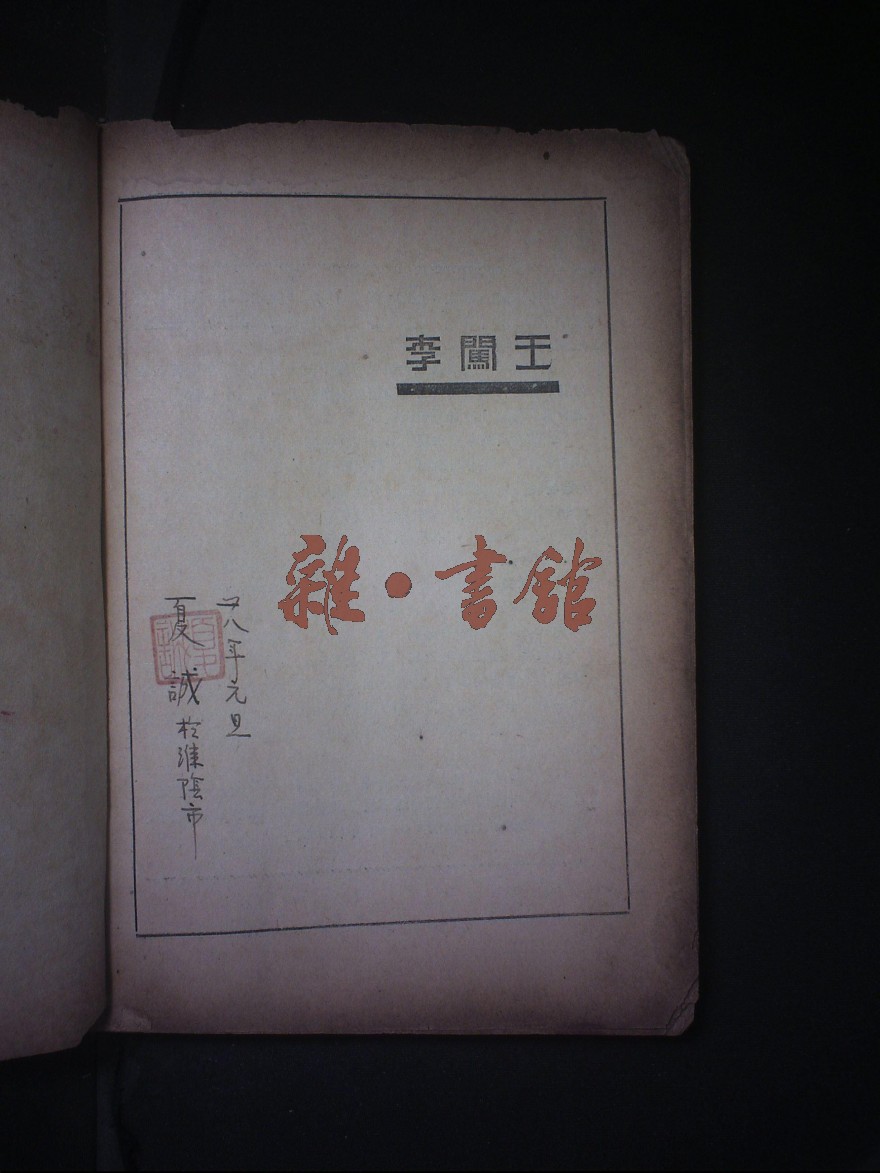 李闖王
雜·書館
廿八年元旦
夏誠於淮陰市